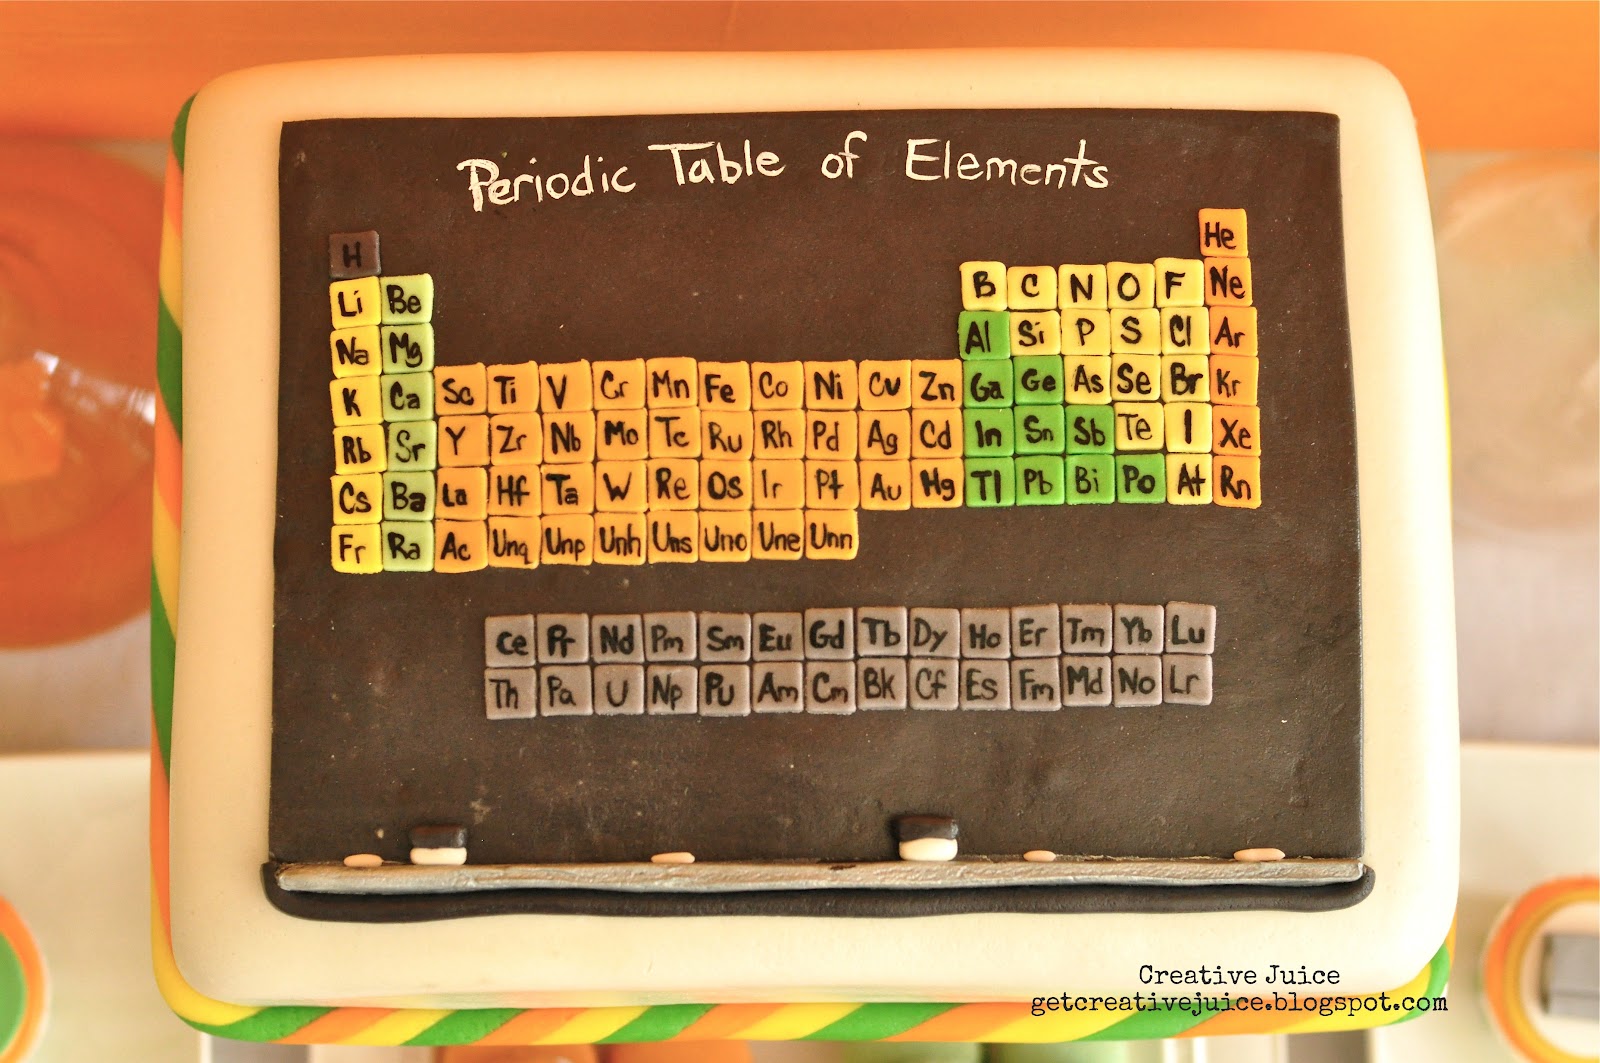 Periodic Table of Elements
H He
Li Be B C N O F Ne
Na Mg Al Si P S Cl Ar
K Ca Sc Ti V Cr Mn Fe Co Ni Cu Zn Ga Ge As Se Br Kr
Rb Sr Y Zr Nb Mo Tc Ru Rh Pd Ag Cd In Sn Sb Te I Xe
Cs Ba La Hf Ta W Re Os Ir Pt Au Hg Tl Pb Bi Po At Rn
Fr Ra Ac Unq Unp Unh Uns Uno Une Unn
Ce Pr Nd Pm Sm Eu Gd Tb Dy Ho Er Tm Yb Lu
Th Pa U Np Pu Am Cm Bk Cf Es Fm Md No Lr
Creative Juice
getcreativejuice.blogspot.com